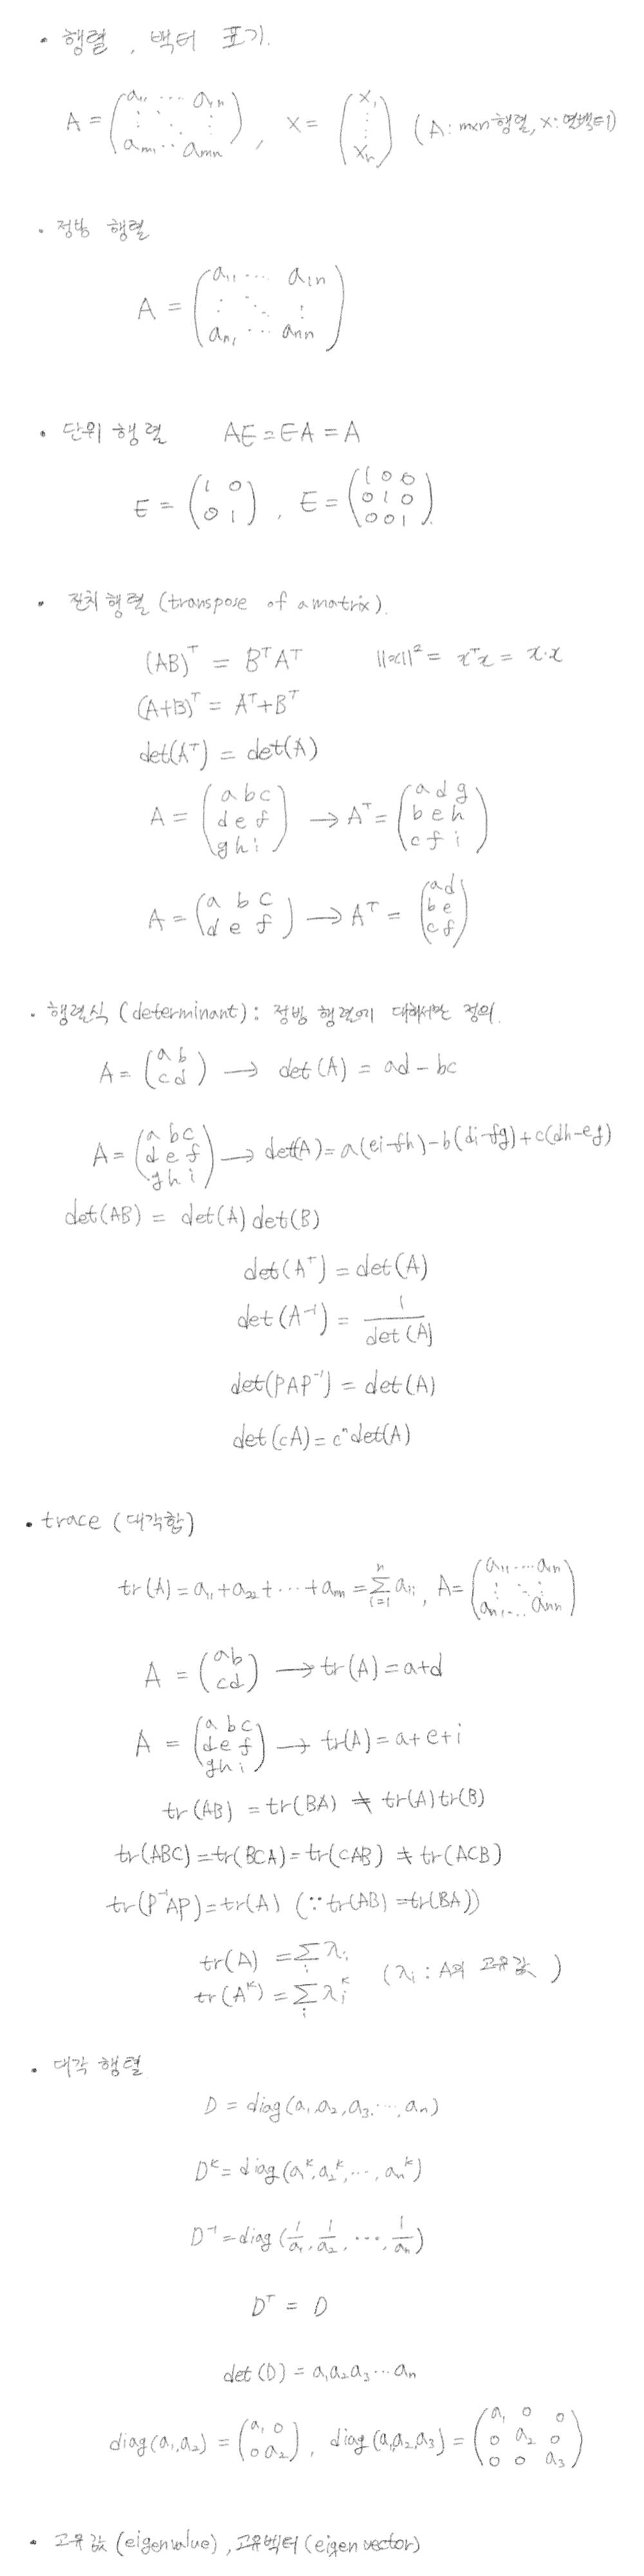 • 행렬, 벡터 표기.
A = (a₁₁ ⋯ a₁ₙ ⋮ ⋱ ⋮ aₘ₁ ⋯ aₘₙ), x = (x₁ ⋮ xₙ) (A: m×n 행렬, x: 열벡터)
• 정방 행렬
A = (a₁₁ ⋯ a₁ₙ ⋮ ⋱ ⋮ aₙ₁ ⋯ aₙₙ)
• 단위 행렬 AE = EA = A
E = (1 0 0 1), E = (1 0 0 0 1 0 0 0 1).
• 전치 행렬 (transpose of a matrix).
(AB)ᵀ = BᵀAᵀ ||x||² = xᵀx = x·x
(A+B)ᵀ = Aᵀ+Bᵀ
det(Aᵀ) = det(A)
A = (a b c d e f g h i) → Aᵀ = (a d g b e h c f i)
A = (a b c d e f) → Aᵀ = (a d b e c f)
• 행렬식 (determinant): 정방 행렬에 대해서만 정의.
A = (a b c d) → det(A) = ad - bc
A = (a b c d e f g h i) → det(A) = a(ei-fh) - b(di-fg) + c(dh-eg)
det(AB) = det(A) det(B)
det(Aᵀ) = det(A)
det(A⁻¹) = 1/det(A)
det(PAP⁻¹) = det(A)
det(cA) = cⁿdet(A)
• trace (대각합)
tr(A) = a₁₁+a₂₂+⋯+aₙₙ = Σᵢ₌₁ⁿ aᵢᵢ, A = (a₁₁ ⋯ a₁ₙ ⋮ ⋱ ⋮ aₙ₁ ⋯ aₙₙ)
A = (a b c d) → tr(A) = a+d
A = (a b c d e f g h i) → tr(A) = a+e+i
tr(AB) = tr(BA) ≠ tr(A)tr(B)
tr(ABC) = tr(BCA) = tr(CAB) ≠ tr(ACB)
tr(P⁻¹AP) = tr(A) (∵ tr(AB) = tr(BA))
tr(A) = Σᵢ λᵢ
tr(Aᵏ) = Σᵢ λᵢᵏ (λᵢ : A의 고유값)
• 대각 행렬
D = diag(a₁, a₂, a₃, ⋯, aₙ)
Dᵏ = diag(a₁ᵏ, a₂ᵏ, ⋯, aₙᵏ)
D⁻¹ = diag(1/a₁, 1/a₂, ⋯, 1/aₙ)
Dᵀ = D
det(D) = a₁a₂a₃⋯aₙ
diag(a₁,a₂) = (a₁ 0 0 a₂), diag(a₁,a₂,a₃) = (a₁ 0 0 0 a₂ 0 0 0 a₃)
• 고유값 (eigenvalue), 고유벡터 (eigen vector)